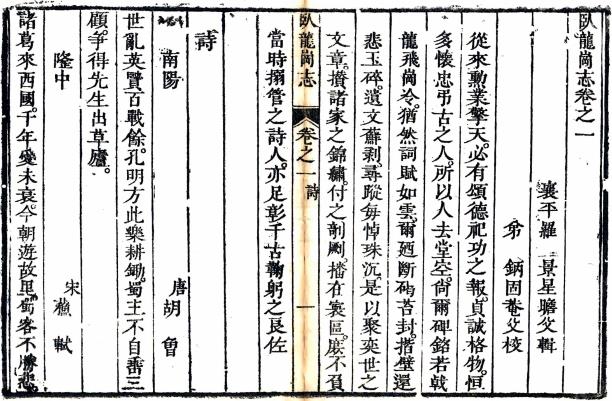 臥龍崗志卷之一
襄平羅 景星瞻父輯
弟 鈵固菴父校
從來勲業擎天。必有頌德祀功之報。貞誠格物。恒
多懷忠弔古之人。所以人去堂空。尙爾碑銘若戟
龍飛崗冷。猶然詞賦如雲。爾廼斷碣苔封。揩壁還
悲玉碎。遺文蘚剥。尋蹤每悼珠沉。是以聚奕世之
文章。攢諸家之錦繡。付之剞劂。播在寰區。庶不負
臥龍崗志 卷之一 詩 一
當時搦管之詩人。亦足彰千古鞠躬之良佐
詩
南陽 唐胡曾
世亂英賢百戰餘。孔明方此樂耕鋤。蜀王不自垂三
顧。爭得先生出草廬。
隆中 宋蘓軾
諸葛來西國。千年愛未衰今朝遊故里。蜀客不勝悲。